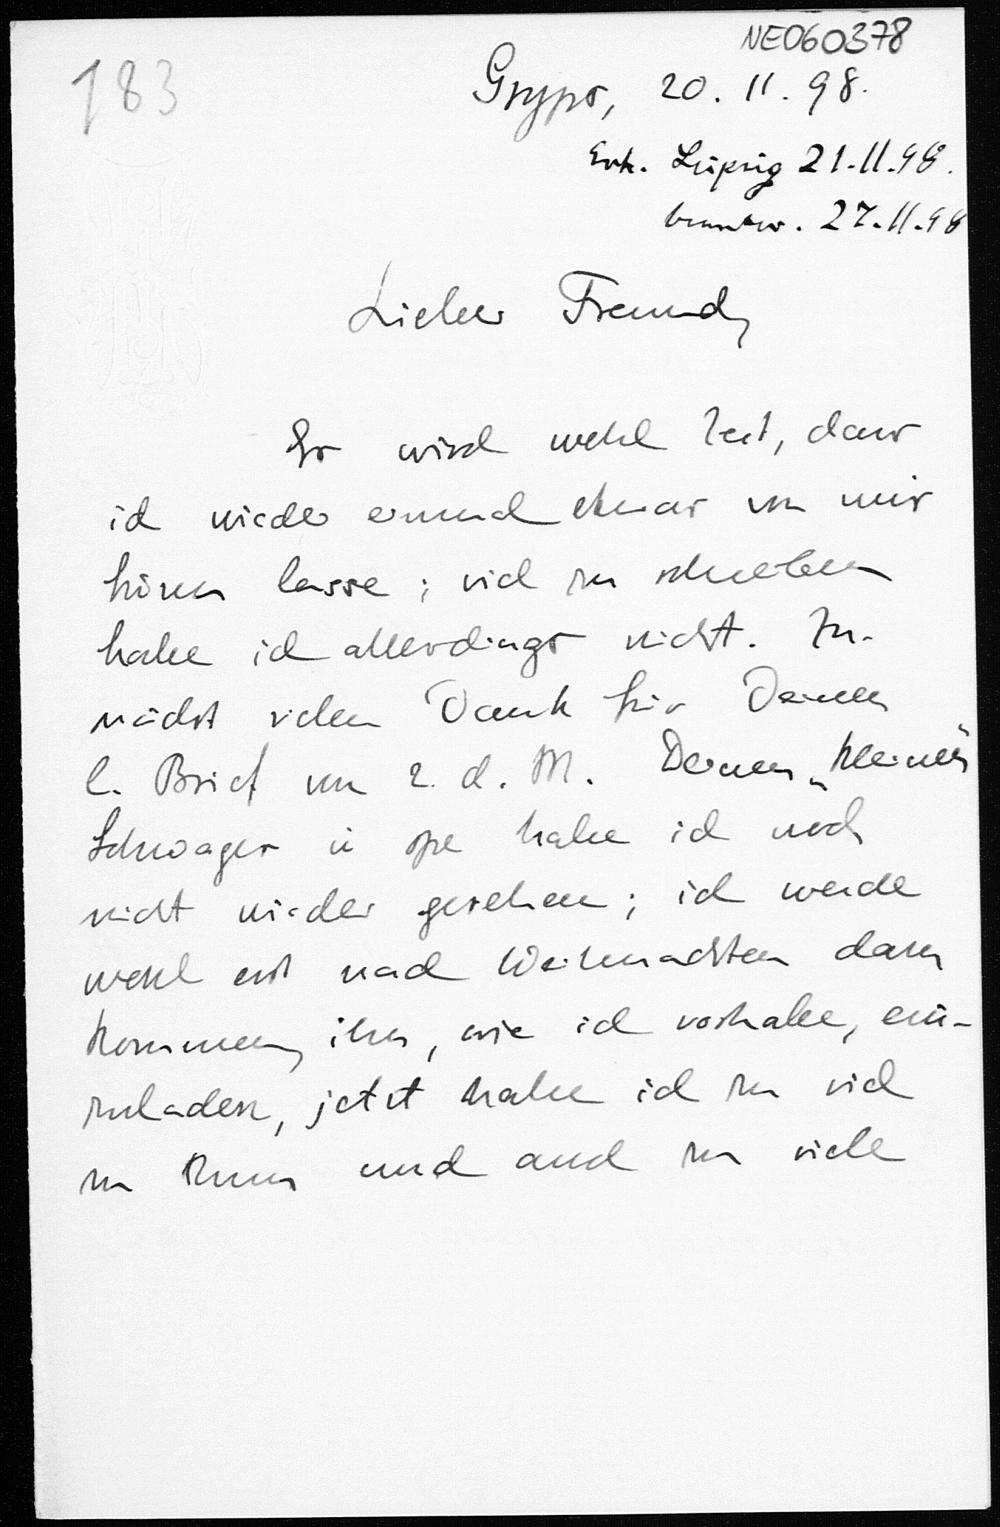 NE060378
183
Gryps, 20. 11. 98.
Erh. Leipzig 21.11.98.
beantw. 27.11.98
Lieber Freund,
Es wird wohl Zeit, dass
ich wieder einmal etwas von mir
hören lasse; viel zu schreiben
habe ich allerdings nicht. Zu-
nächst vielen Dank für Deinen
l. Brief vom 2. d. M. Deinen „kleinen“
Schwager in spe habe ich noch
nicht wieder gesehen; ich werde
wohl erst nach Weihnachten dazu
kommen, ihn, wie ich vorhabe, ein-
zuladen, jetzt habe ich zu viel
zu thun und auch zu viele